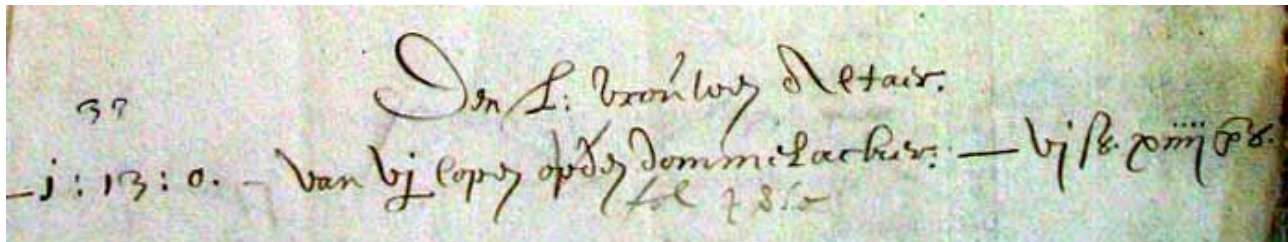 Den L: vrouwen Altaer.
37
j : 13 : 0. - van vj lopen opden dommelacker. — vj st. xiiij
fol